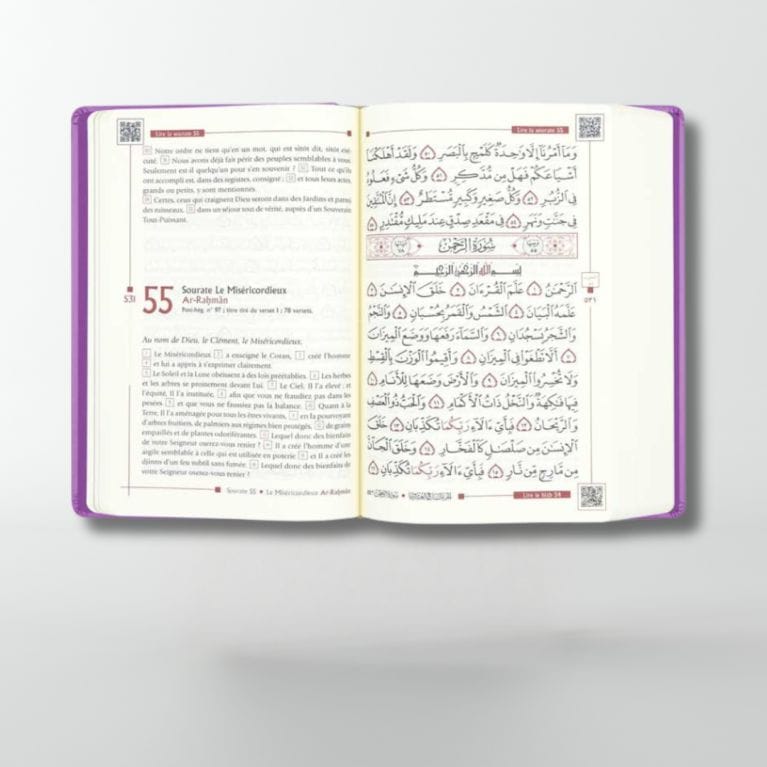 Lire la sourate 55
50 Notre ordre ne tient qu'en un mot, qui est sitôt dit, sitôt exé-
cuté. 51 Nous avons déjà fait périr des peuples semblables à vous.
Seulement est-il quelqu'un pour s'en souvenir ? 52 Tout ce qu'ils
ont accompli est, dans des registres, consigné ; 53 et tous leurs actes,
grands ou petits, y sont mentionnés.
54 Certes, ceux qui craignent Dieu seront dans des Jardins et parmi
des ruisseaux, 55 dans un séjour tout de vérité, auprès d'un Souverain
Tout-Puissant.
531
55
Sourate Le Miséricordieux
Ar-Raḥmân
Post-hég. n° 97 ; titre tiré du verset 1 ; 78 versets.
Au nom de Dieu, le Clément, le Miséricordieux.
1 Le Miséricordieux 2 a enseigné le Coran, 3 créé l'homme
4 et lui a appris à s'exprimer clairement.
5 Le Soleil et la Lune obéissent à des lois préétablies. 6 Les herbes
et les arbres se prosternent devant Lui. 7 Le Ciel, Il l'a élevé ; et
l'équité, Il l'a instituée, 8 afin que vous ne fraudiez pas dans les
pesées 9 et que vous ne faussiez pas la balance. 10 Quant à la
Terre, Il l'a aménagée pour tous les êtres vivants, 11 en la pourvoyant
d'arbres fruitiers, de palmiers aux régimes bien protégés, 12 de grains
empaillés et de plantes odoriférantes. 13 Lequel donc des bienfaits
de votre Seigneur oserez-vous renier ? 14 Il a créé l'homme d'une
argile semblable à celle qui est utilisée en poterie 15 et Il a créé les
djinns d'un feu subtil sans fumée. 16 Lequel donc des bienfaits de
votre Seigneur oserez-vous renier ?
Sourate 55 • Le Miséricordieux Ar-Raḥmân
Lire la sourate 55
وَمَآ أَمْرُنَآ إِلَّا وَٰحِدَةٌ كَلَمْحٍۭ بِٱلْبَصَرِ ٥٠ وَلَقَدْ أَهْلَكْنَآ
أَشْيَاعَكُمْ فَهَلْ مِن مُّدَّكِرٍ ٥١ وَكُلُّ شَىْءٍ فَعَلُوهُ
فِى ٱلزُّبُرِ ٥٢ وَكُلُّ صَغِيرٍ وَكَبِيرٍ مُّسْتَطَرٌ ٥٣ إِنَّ ٱلْمُتَّقِينَ
فِى جَنَّٰتٍ وَنَهَرٍ ٥٤ فِى مَقْعَدِ صِدْقٍ عِندَ مَلِيكٍ مُّقْتَدِرٍۭ ٥٥
سُورَةُ الرَّحْمَٰن
بِسْمِ ٱللَّهِ ٱلرَّحْمَٰنِ ٱلرَّحِيمِ
ٱلرَّحْمَٰنُ ١ عَلَّمَ ٱلْقُرْءَانَ ٢ خَلَقَ ٱلْإِنسَٰنَ ٣
عَلَّمَهُ ٱلْبَيَانَ ٤ ٱلشَّمْسُ وَٱلْقَمَرُ بِحُسْبَانٍ ٥ وَٱلنَّجْمُ
وَٱلشَّجَرُ يَسْجُدَانِ ٦ وَٱلسَّمَآءَ رَفَعَهَا وَوَضَعَ ٱلْمِيزَانَ
٧ أَلَّا تَطْغَوْا۟ فِى ٱلْمِيزَانِ ٨ وَأَقِيمُوا۟ ٱلْوَزْنَ بِٱلْقِسْطِ
وَلَا تُخْسِرُوا۟ ٱلْمِيزَانَ ٩ وَٱلْأَرْضَ وَضَعَهَا لِلْأَنَامِ ١٠
فِيهَا فَٰكِهَةٌ وَٱلنَّخْلُ ذَاتُ ٱلْأَكْمَامِ ١١ وَٱلْحَبُّ ذُو ٱلْعَصْفِ
وَٱلرَّيْحَانُ ١٢ فَبِأَىِّ ءَالَآءِ رَبِّكُمَا تُكَذِّبَانِ ١٣ خَلَقَ
ٱلْإِنسَٰنَ مِن صَلْصَٰلٍ كَٱلْفَخَّارِ ١٤ وَخَلَقَ ٱلْجَآنَّ
مِن مَّارِجٍ مِّن نَّارٍ ١٥ فَبِأَىِّ ءَالَآءِ رَبِّكُمَا تُكَذِّبَانِ ١٦
٥٣١
Lire le hizb 54